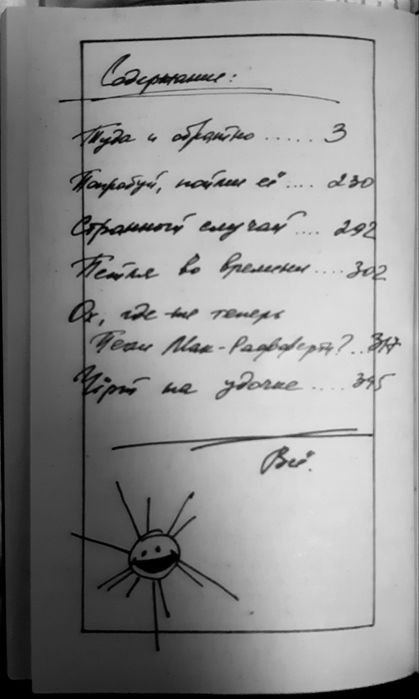 Содержание:
Туда и обратно ...... 3
Попробуй, пойми её .... 230
Странный случай .... 292
Петля во времени .... 302
Ох, где же теперь
Пегги Мак-Рафферти? .. 317
Чёрт на удочке .... 345
Всё.